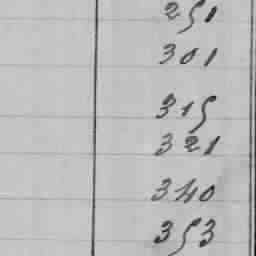 251
301
315
321
340
353